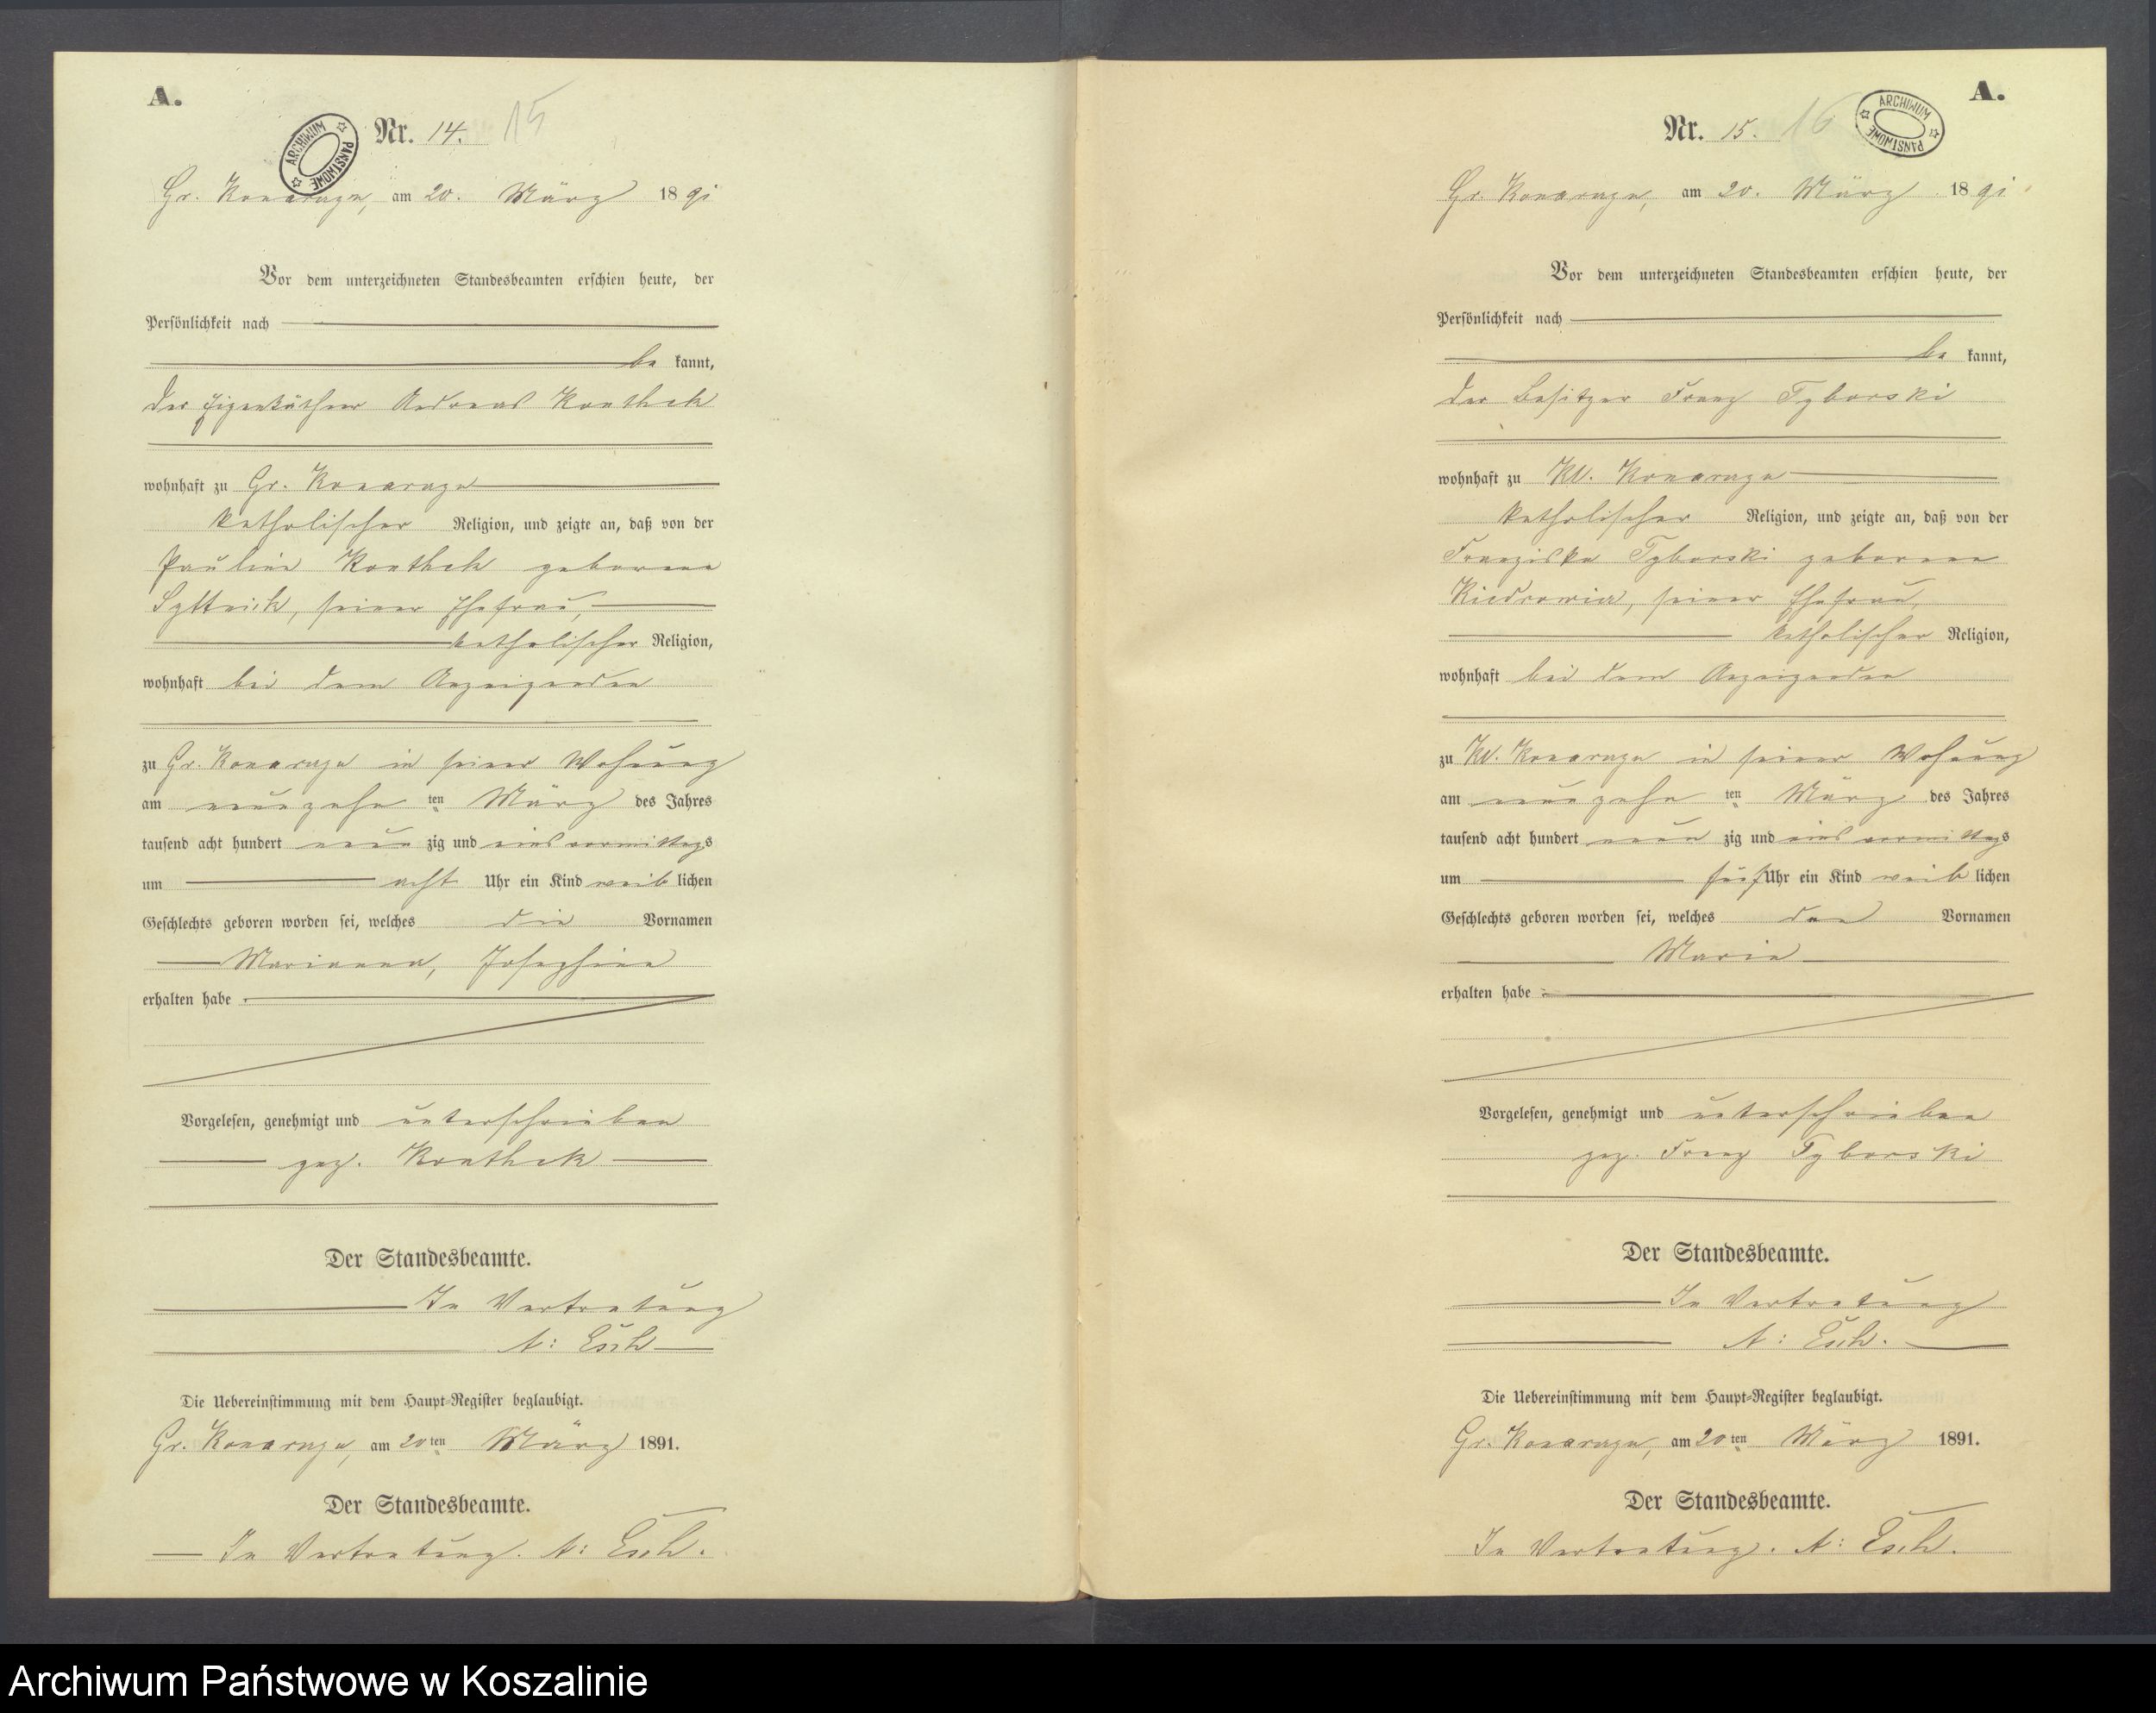 A.
ARCHIWUM PAŃSTWOWE
Nr. 14. 15
Gr. Konarzyn, am 20. März 1891
Vor dem unterzeichneten Standesbeamten erschien heute, der
Persönlichkeit nach
be kannt,
der Eigenkäthner Andreas
wohnhaft zu Gr. Konarzyn
katholischer Religion, und zeigte an, daß von der
Pauline geborene
seiner Ehefrau,
katholischer Religion,
wohnhaft bei dem Anzeigenden
zu Gr. Konarzyn in seiner Wohnung
am neunzehn ten März des Jahres
tausend acht hundert neun zig und eins vormittags
um acht Uhr ein Kind weib lichen
Geschlechts geboren worden sei, welches die Vornamen
Marianna, Josephine
erhalten habe
Vorgelesen, genehmigt und unterschrieben
gez.
Der Standesbeamte.
In Vertretung
A: Esch
Die Uebereinstimmung mit dem Haupt-Register beglaubigt.
Gr. Konarzyn, am 20ten März 1891.
Der Standesbeamte.
In Vertretung. A: Esch.
A.
ARCHIWUM PAŃSTWOWE
Nr. 15. 16
Gr. Konarzyn, am 20. März 1891
Vor dem unterzeichneten Standesbeamten erschien heute, der
Persönlichkeit nach
be kannt,
der Besitzer Franz Tyborski
wohnhaft zu Kl. Konarzyn
katholischer Religion, und zeigte an, daß von der
Franziska Tyborski geborene
Kiedrowicz, seiner Ehefrau,
katholischer Religion,
wohnhaft bei dem Anzeigenden
zu Kl. Konarzyn in seiner Wohnung
am neunzehn ten März des Jahres
tausend acht hundert neun zig und eins vormittags
um fünf Uhr ein Kind weib lichen
Geschlechts geboren worden sei, welches den Vornamen
Marie
erhalten habe
Vorgelesen, genehmigt und unterschrieben
gez. Franz Tyborski
Der Standesbeamte.
In Vertretung
A: Esch.
Die Uebereinstimmung mit dem Haupt-Register beglaubigt.
Gr. Konarzyn, am 20ten März 1891.
Der Standesbeamte.
In Vertretung. A: Esch.
Archiwum Państwowe w Koszalinie